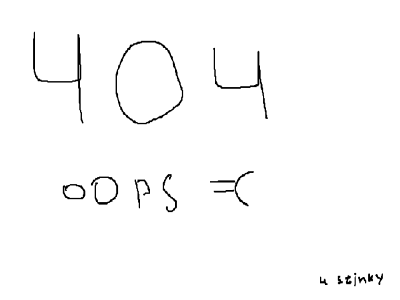 404
oops =(
u stinky